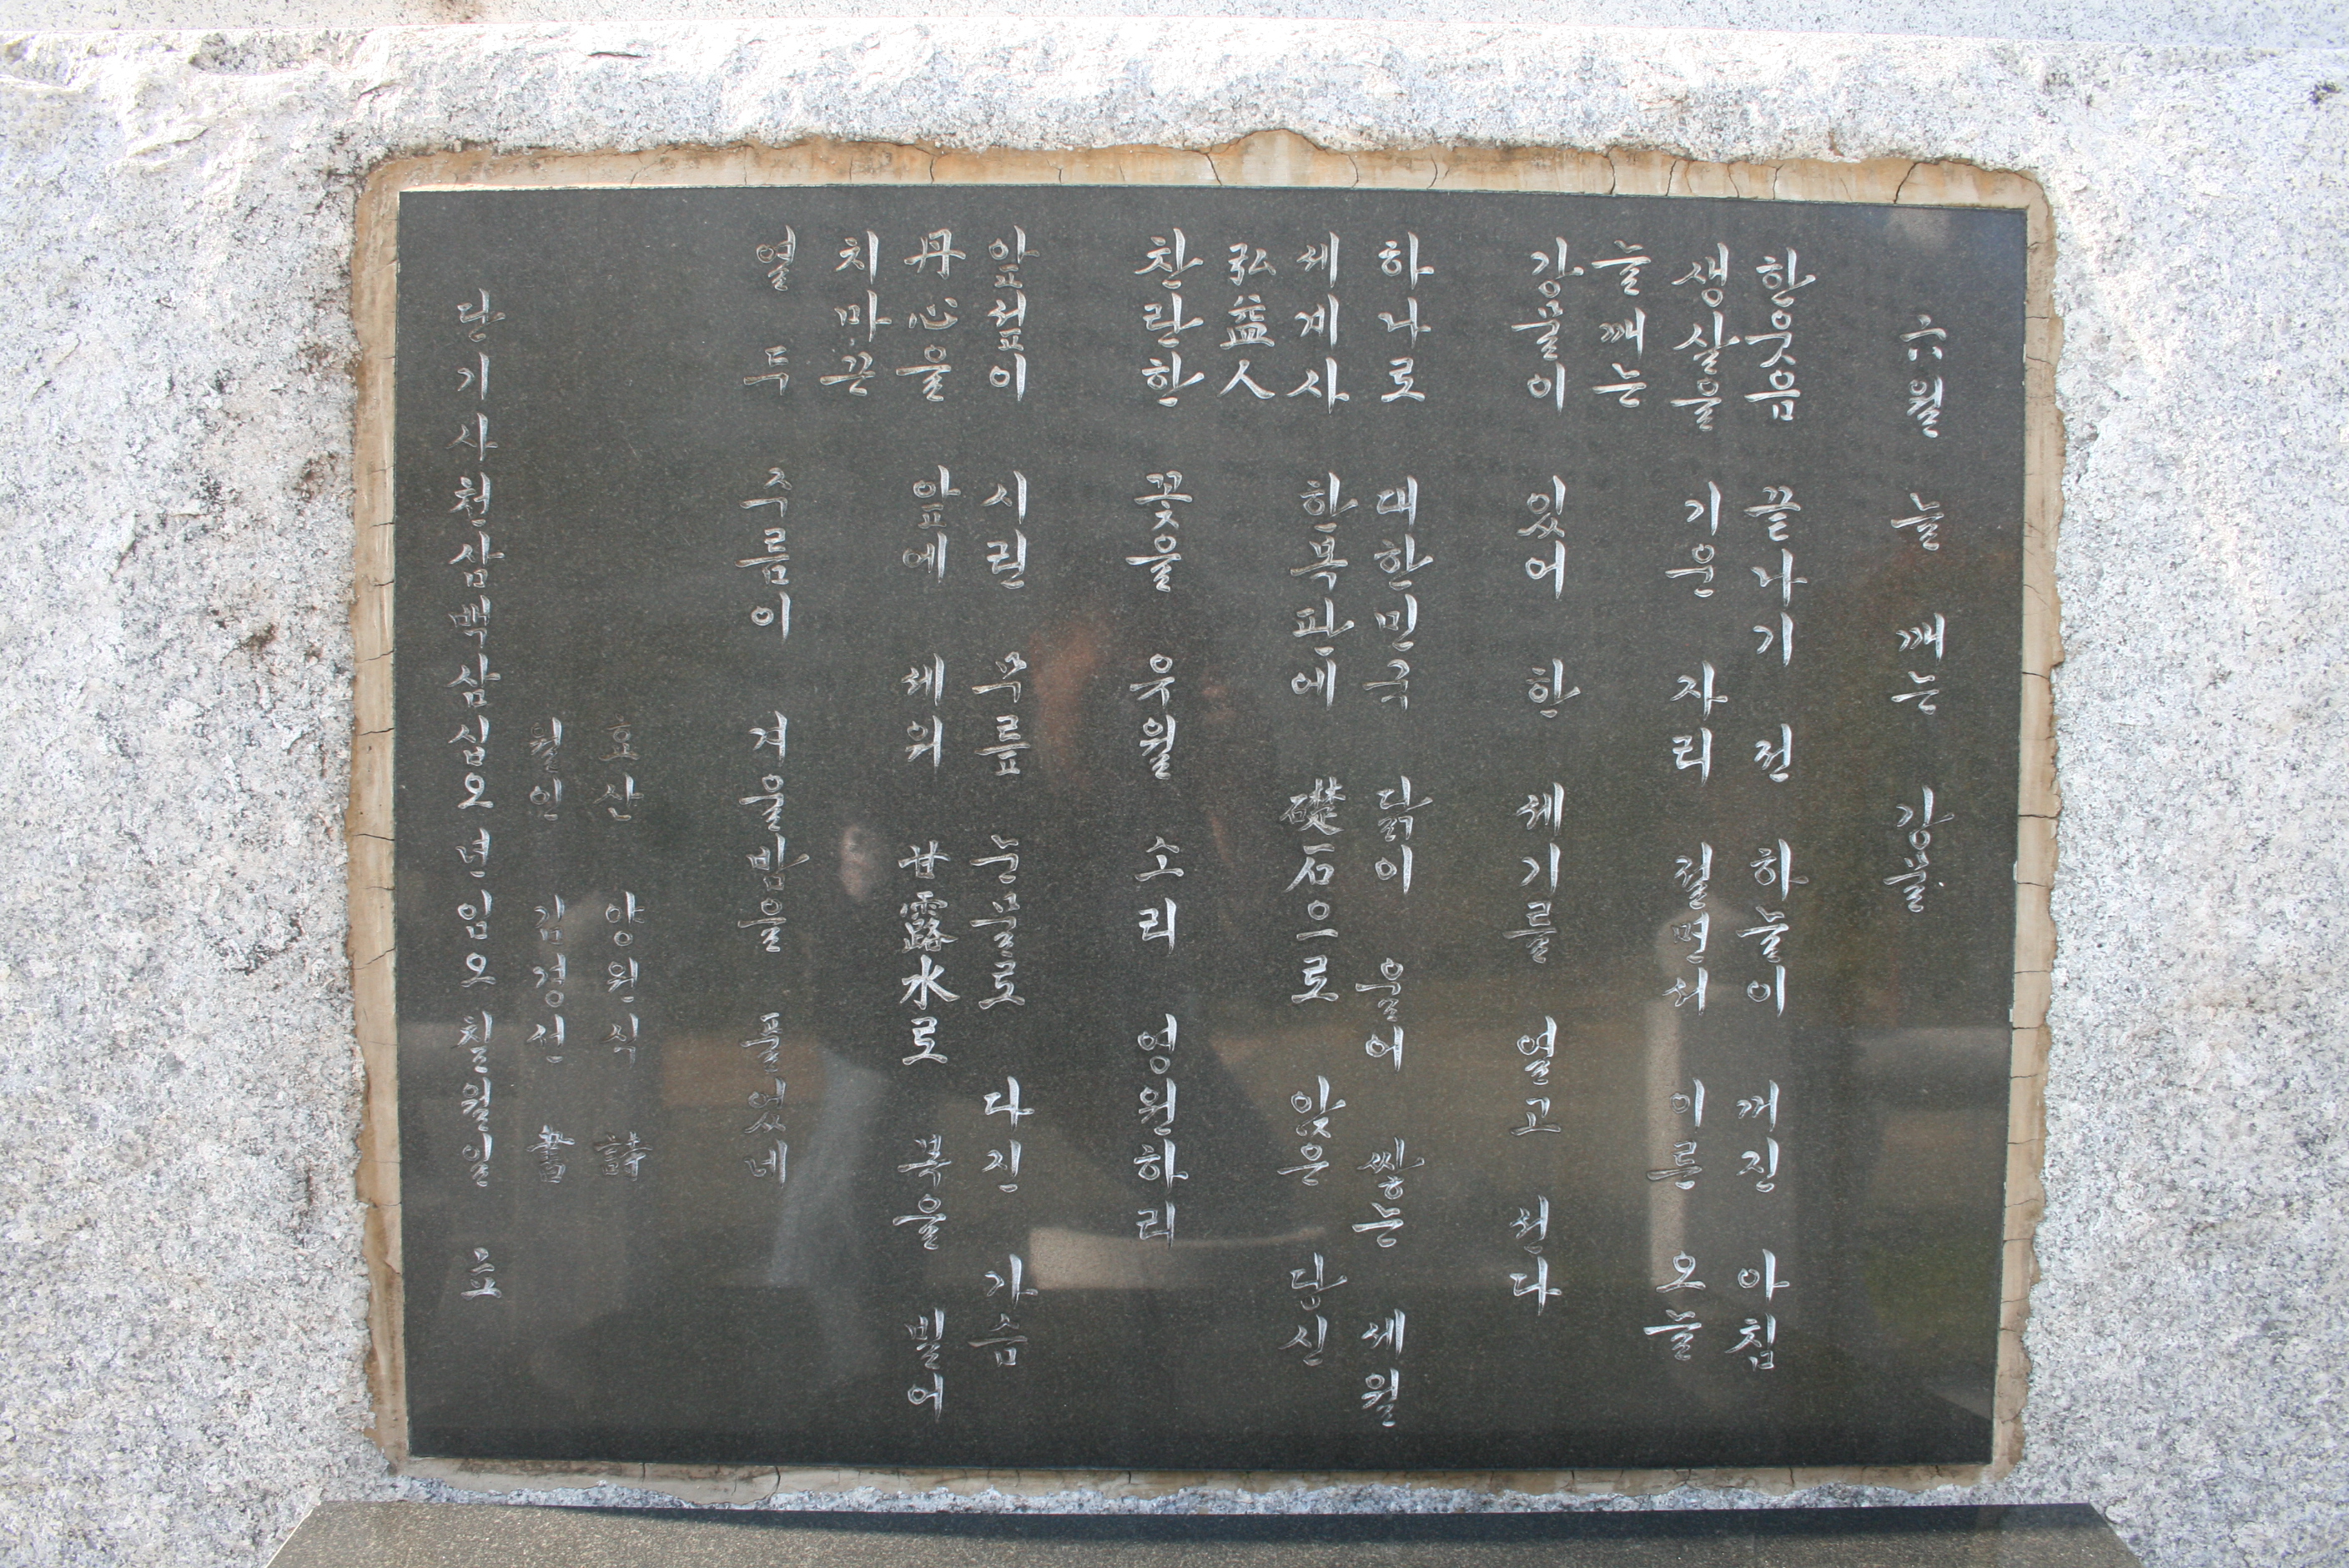 六월 늘 깨는 강물
한웃음 끝나기 전 하늘이 꺼진 아침
생살을 기운 자리 절면서 이른 오늘
늘깨는
강물이 있어 한 세기를 열고 선다
하나로 대한민국 닭이 울어 쌓는 세월
세계사 한복판에 礎石으로 앉은 당신
弘益人
찬란한 꽃을 유월 소리 영원하리
앞섶이 시린 무릎 눈물로 다진 가슴
丹心을 앞에 세워 甘露水로 북을 빌어
치마끈
열 두 주름이 겨울밤을 풀었네
효산 양원식 詩
월인 김경선 書
단기사천삼백삼십오년임오칠월일